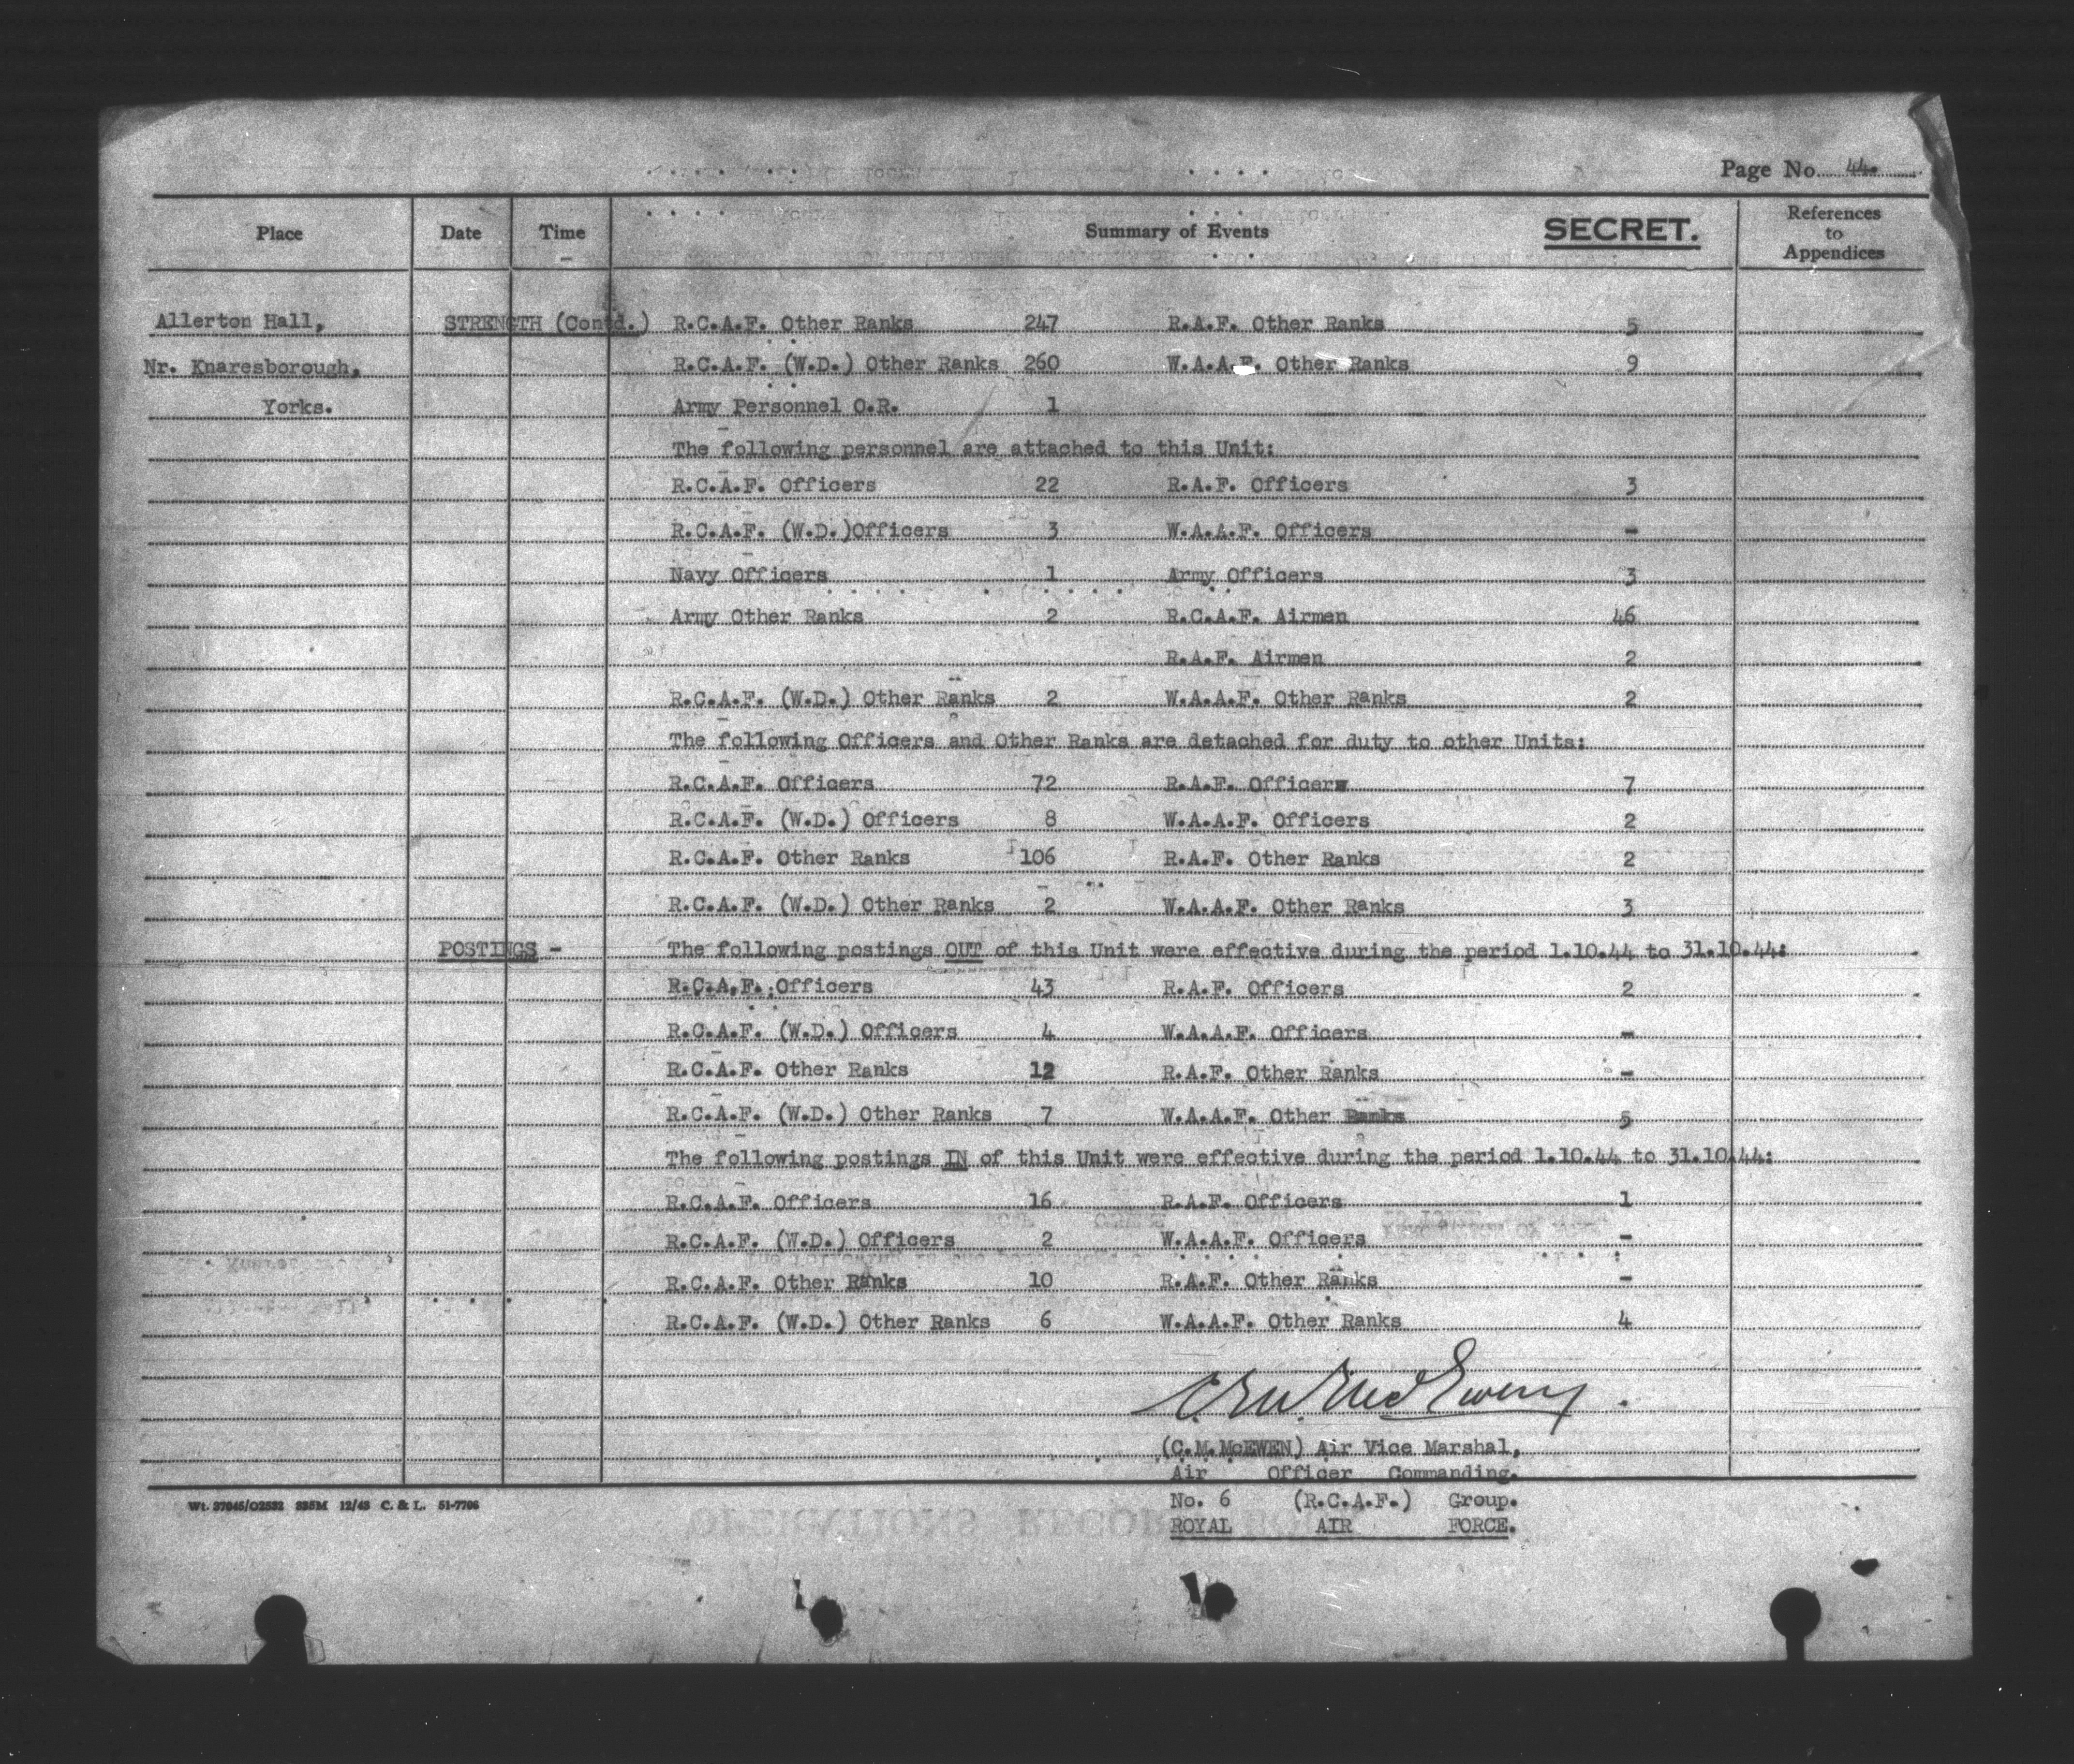 Page No. 44.
Place Date Time Summary of Events SECRET. References to Appendices
Allerton Hall, STRENGTH (Contd.) R.C.A.F. Other Ranks 247 R.A.F. Other Ranks 5
Nr. Knaresborough, R.C.A.F. (W.D.) Other Ranks 260 W.A.A.F. Other Ranks 9
Yorks. Army Personnel O.R. 1
The following personnel are attached to this Unit:
R.C.A.F. Officers 22 R.A.F. Officers 3
R.C.A.F. (W.D.)Officers 3 W.A.A.F. Officers -
Navy Officers 1 Army Officers 3
Army Other Ranks 2 R.C.A.F. Airmen 46
R.A.F. Airmen 2
R.C.A.F. (W.D.) Other Ranks 2 W.A.A.F. Other Ranks 2
The following Officers and Other Ranks are detached for duty to other Units:
R.C.A.F. Officers 72 R.A.F. Officers 7
R.C.A.F. (W.D.) Officers 8 W.A.A.F. Officers 2
R.C.A.F. Other Ranks 106 R.A.F. Other Ranks 2
R.C.A.F. (W.D.) Other Ranks 2 W.A.A.F. Other Ranks 3
POSTINGS - The following postings OUT of this Unit were effective during the period 1.10.44 to 31.10.44:
R.C.A.F. Officers 43 R.A.F. Officers 2
R.C.A.F. (W.D.) Officers 4 W.A.A.F. Officers -
R.C.A.F. Other Ranks 12 R.A.F. Other Ranks -
R.C.A.F. (W.D.) Other Ranks 7 W.A.A.F. Other Ranks 5
The following postings IN of this Unit were effective during the period 1.10.44 to 31.10.44:
R.C.A.F. Officers 16 R.A.F. Officers 1
R.C.A.F. (W.D.) Officers 2 W.A.A.F. Officers -
R.C.A.F. Other Ranks 10 R.A.F. Other Ranks -
R.C.A.F. (W.D.) Other Ranks 6 W.A.A.F. Other Ranks 4
(C.M.McEWEN) Air Vice Marshal,
Air Officer Commanding.
No. 6 (R.C.A.F.) Group.
ROYAL AIR FORCE.
Wt. 27045/O2532 335M 12/43 C. & L. 51-7706